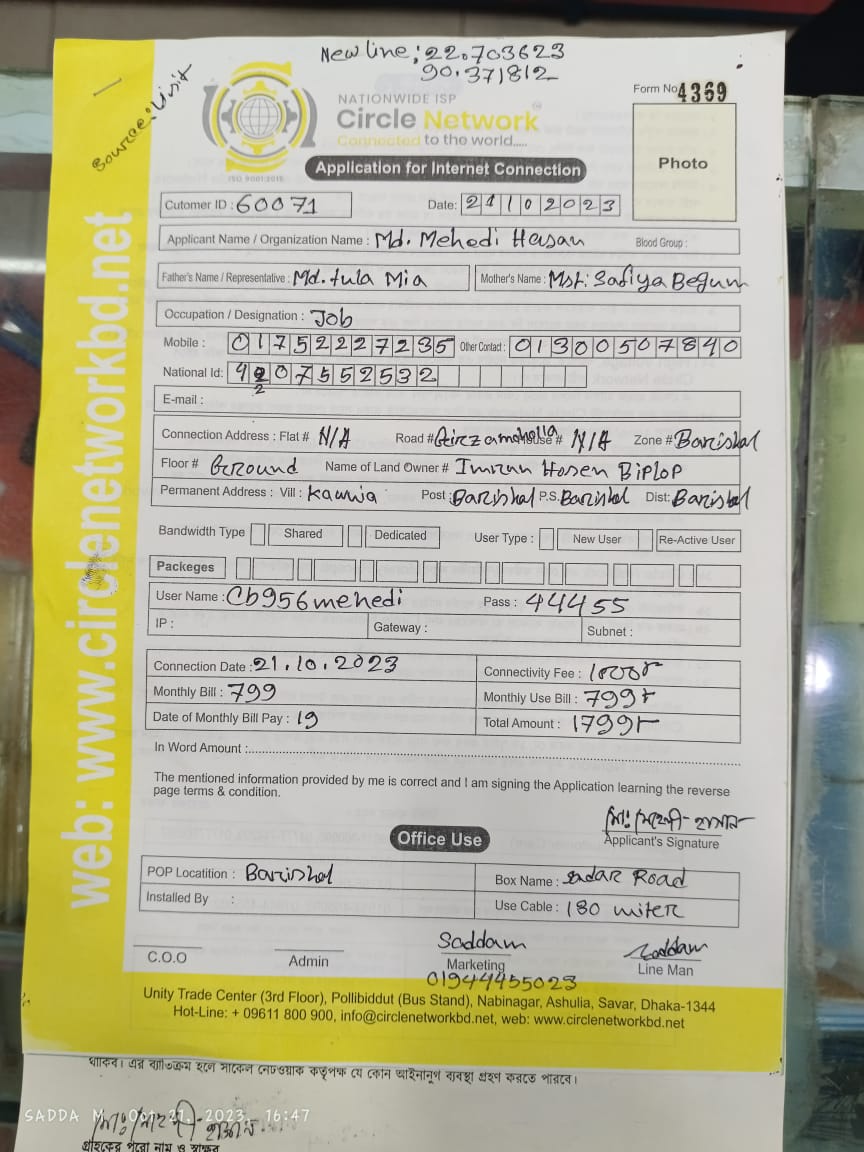 New line; 22.703623
90.371812
Source: Visit
NATIONWIDE ISP
Circle Network
Connected to the world.....
ISO 9001:2015
Form No 4369
Photo
Application for Internet Connection
Cutomer ID : 60071 Date: 21 10 2023
Applicant Name / Organization Name : Md. Mehedi Hasan Blood Group :
Father's Name / Representative : Md. tula Mia Mother's Name : Mst: Safiya Begum
Occupation / Designation : Job
Mobile : 01752227235 Other Contact : 01300507840
National Id: 4207552532
2
E-mail :
Connection Address : Flat # N/A Road # Girzamoholla House # N/A Zone # Barishal
Floor # Ground Name of Land Owner # Imran Hosen Biplop
Permanent Address : Vill : Kawnia Post : Barishal P.S. Barishal Dist: Barishal
Bandwidth Type Shared Dedicated User Type : New User Re-Active User
Packeges
User Name : Cb956mehedi Pass : 44455
IP : Gateway : Subnet :
Connection Date : 21.10.2023 Connectivity Fee : 1000৳
Monthly Bill : 799 Monthly Use Bill : 799৳
Date of Monthly Bill Pay : 19 Total Amount : 1799৳
In Word Amount :
The mentioned information provided by me is correct and I am signing the Application learning the reverse
page terms & condition.
মোঃ মেহেদী হাসান
Applicant's Signature
Office Use
POP Locatition : Barishal Box Name : Sadar Road
Installed By : Use Cable : 180 miter
Saddam Saddam
C.O.O Admin Marketing Line Man
01944455023
Unity Trade Center (3rd Floor), Pollibiddut (Bus Stand), Nabinagar, Ashulia, Savar, Dhaka-1344
Hot-Line: + 09611 800 900, info@circlenetworkbd.net, web: www.circlenetworkbd.net
web: www.circlenetworkbd.net
থাকিব। এর ব্যতিক্রম হলে সার্কেল নেটওয়াক কর্তৃপক্ষ যে কোন আইনানুগ ব্যবস্থা গ্রহণ করতে পারবে।
মোঃ মেহেদী হাসান
SADDA M Oct 21, 2023, 16:47
গ্রাহকের পুরো নাম ও স্বাক্ষর